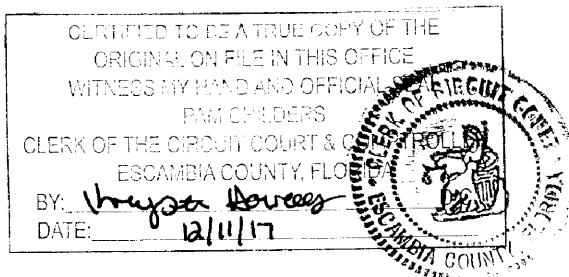 CERTIFIED TO BE A TRUE COPY OF THE
ORIGINAL ON FILE IN THIS OFFICE
WITNESS MY HAND AND OFFICIAL
PAM CHILDERS
CLERK OF THE CIRCUIT COURT &
ESCAMBIA COUNTY, FLORIDA
BY:
DATE: 12/11/17
CLERK OF CIRCUIT
ESCAMBIA COUNTY FLORIDA